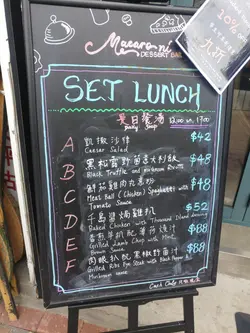 Macaroni
DESSERT BAR
SET LUNCH
是日餐湯 12:00 - 17:00
Daily Soup
A 凱撒沙律 $42
Caesar Salad
B 黑松露野菌意大利飯 $48
Black Truffle and Mushroom Risotto
C 鮮茄雞肉丸意粉 $48
Meat Ball (Chicken) Spaghetti with
Tomato Sauce
D 千島醬焗雞扒 $52
Baked Chicken with Thousand Island dressing
E $88
Grilled Lamb Chop with Mint
Brown Sauce
F 肉眼扒配黑椒野菌汁 $88
Grilled Ribs Eye Steak with Black Pepper &
Mushroom sauce
Cash Only